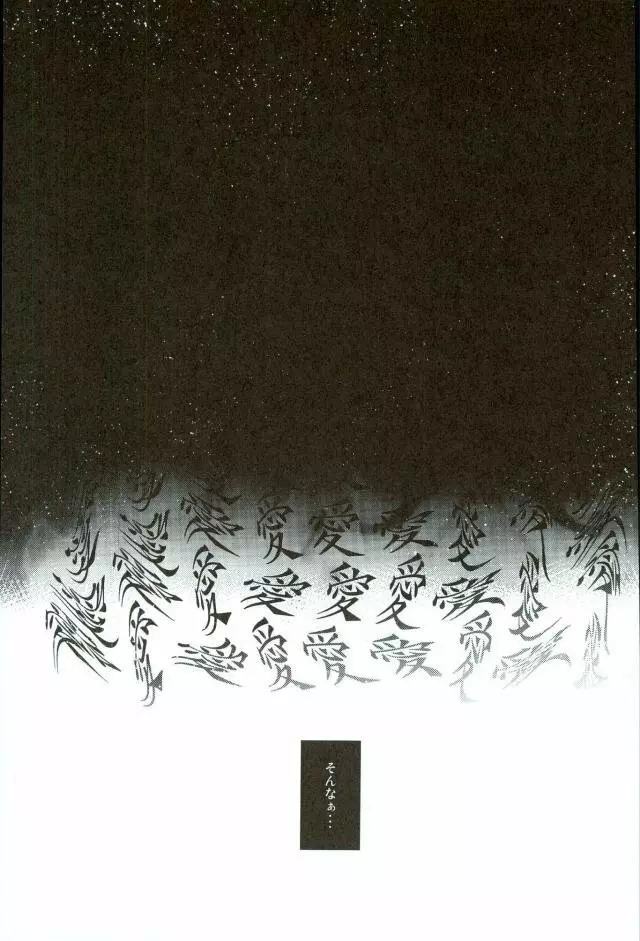 愛 愛 愛 愛 愛 愛
愛 愛 愛 愛 愛 愛 愛
愛 愛 愛 愛 愛 愛
そんなぁ…